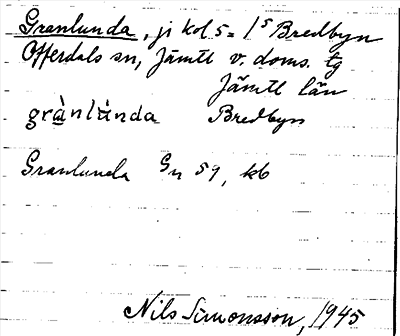 Granlunda, ji kol. 5 = 1⁵ Bredbyn
Offerdals sn, Jämtl v. doms. tg
Jämtl län
grànlùnda Bredbyn
Granlunda Gn 59, kb
Nils Simonsson, 1945